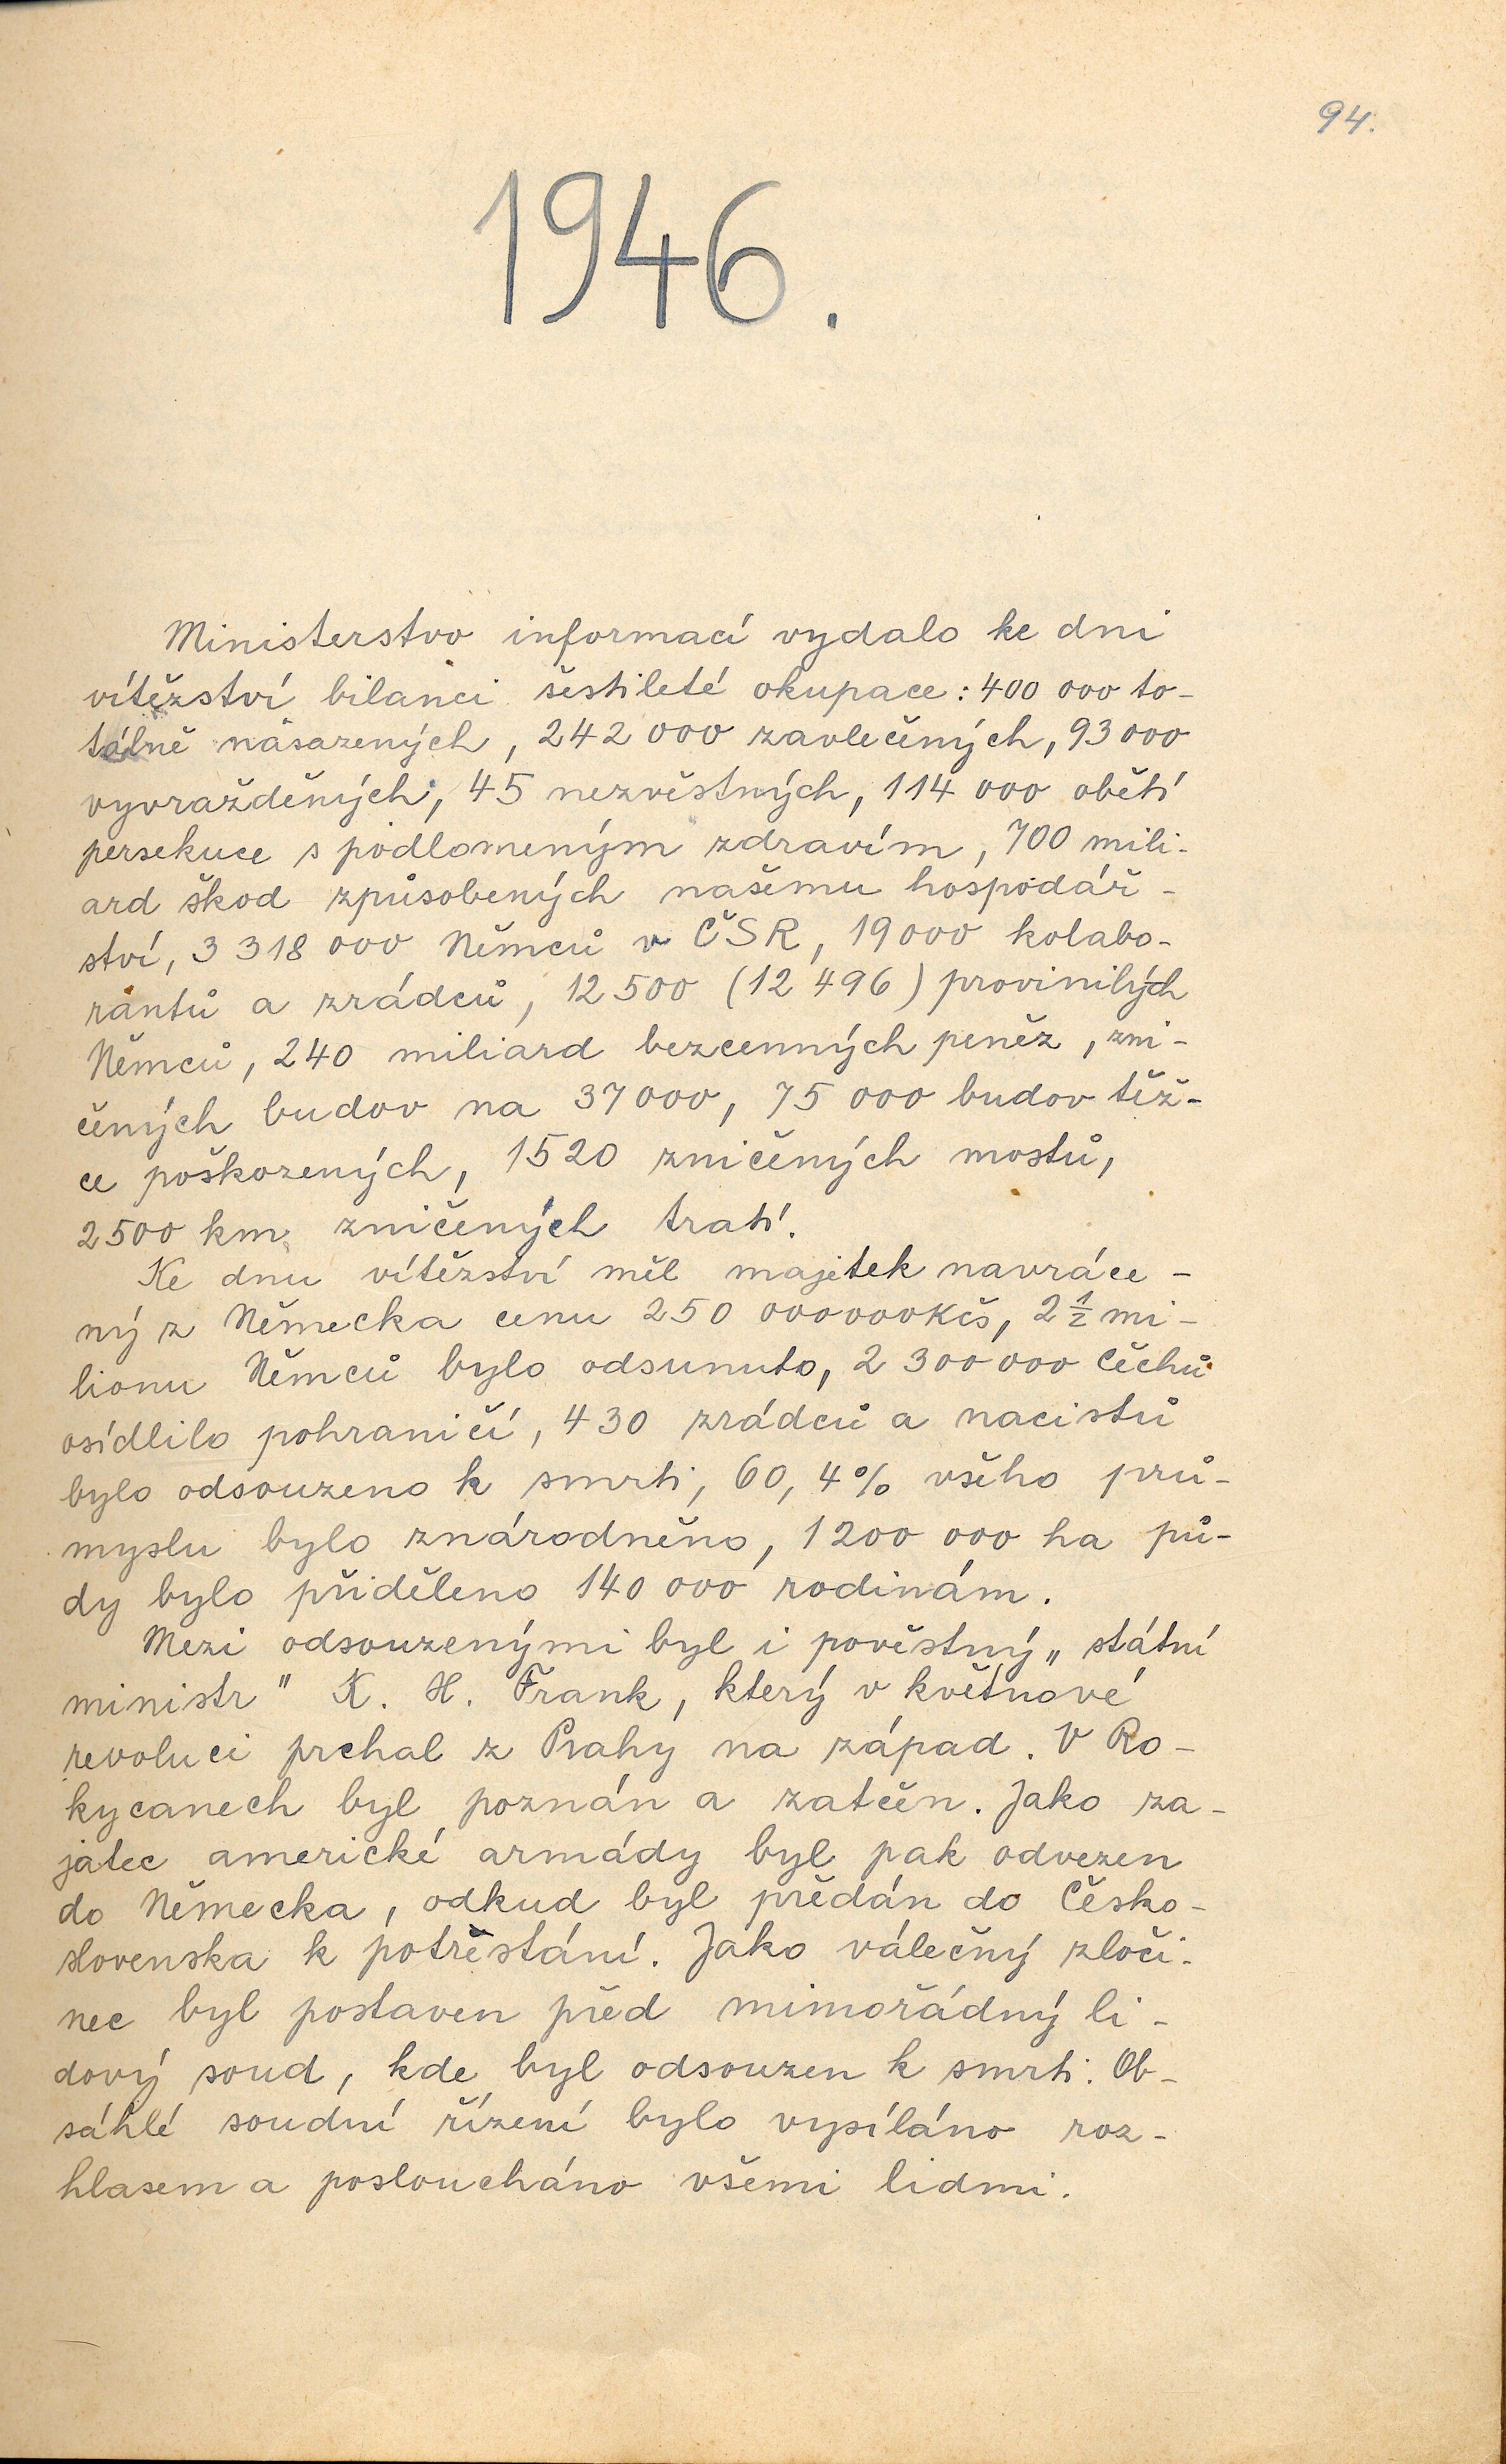 94.
1946.
Ministerstvo informací vydalo ke dni
vítězství bilanci šestileté okupace: 400 000 to-
tálně nasazených, 242 000 zavlečených, 93 000
vyvražděných, 45 nezvěstných, 114 000 obětí
persekuce s podlomeným zdravím, 700 mili-
ard škod způsobených našemu hospodář-
ství, 3 318 000 Němců v ČSR, 19 000 kolabo-
rantů a zrádců, 12 500 (12 496) provinilých
Němců, 240 miliard bezcenných peněz, zni-
čených budov na 37 000, 75 000 budov těž-
ce poškozených, 1520 zničených mostů,
2500 km zničených tratí.
Ke dnu vítězství měl majetek navráce-
ný z Německa cenu 250 000 000 Kčs, 2 ½ mi-
lionu Němců bylo odsunuto, 2 300 000 Čechů
osídlilo pohraničí, 430 zrádců a nacistů
bylo odsouzeno k smrti, 60,4% všeho prů-
myslu bylo znárodněno, 1 200 000 ha pů-
dy bylo přiděleno 140 000 rodinám.
Mezi odsouzenými byl i pověstný „státní
ministr" K. H. Frank, který v květnové
revoluci prchal z Prahy na západ. V Ro-
kycanech byl poznán a zatčen. Jako za-
jatec americké armády byl pak odvezen
do Německa, odkud byl předán do Česko-
slovenska k potrěstání. Jako válečný zloči-
nec byl postaven před mimořádný li-
dový soud, kde byl odsouzen k smrti. Ob-
sáhlé soudní řízení bylo vysíláno roz-
hlasem a posloucháno všemi lidmi.